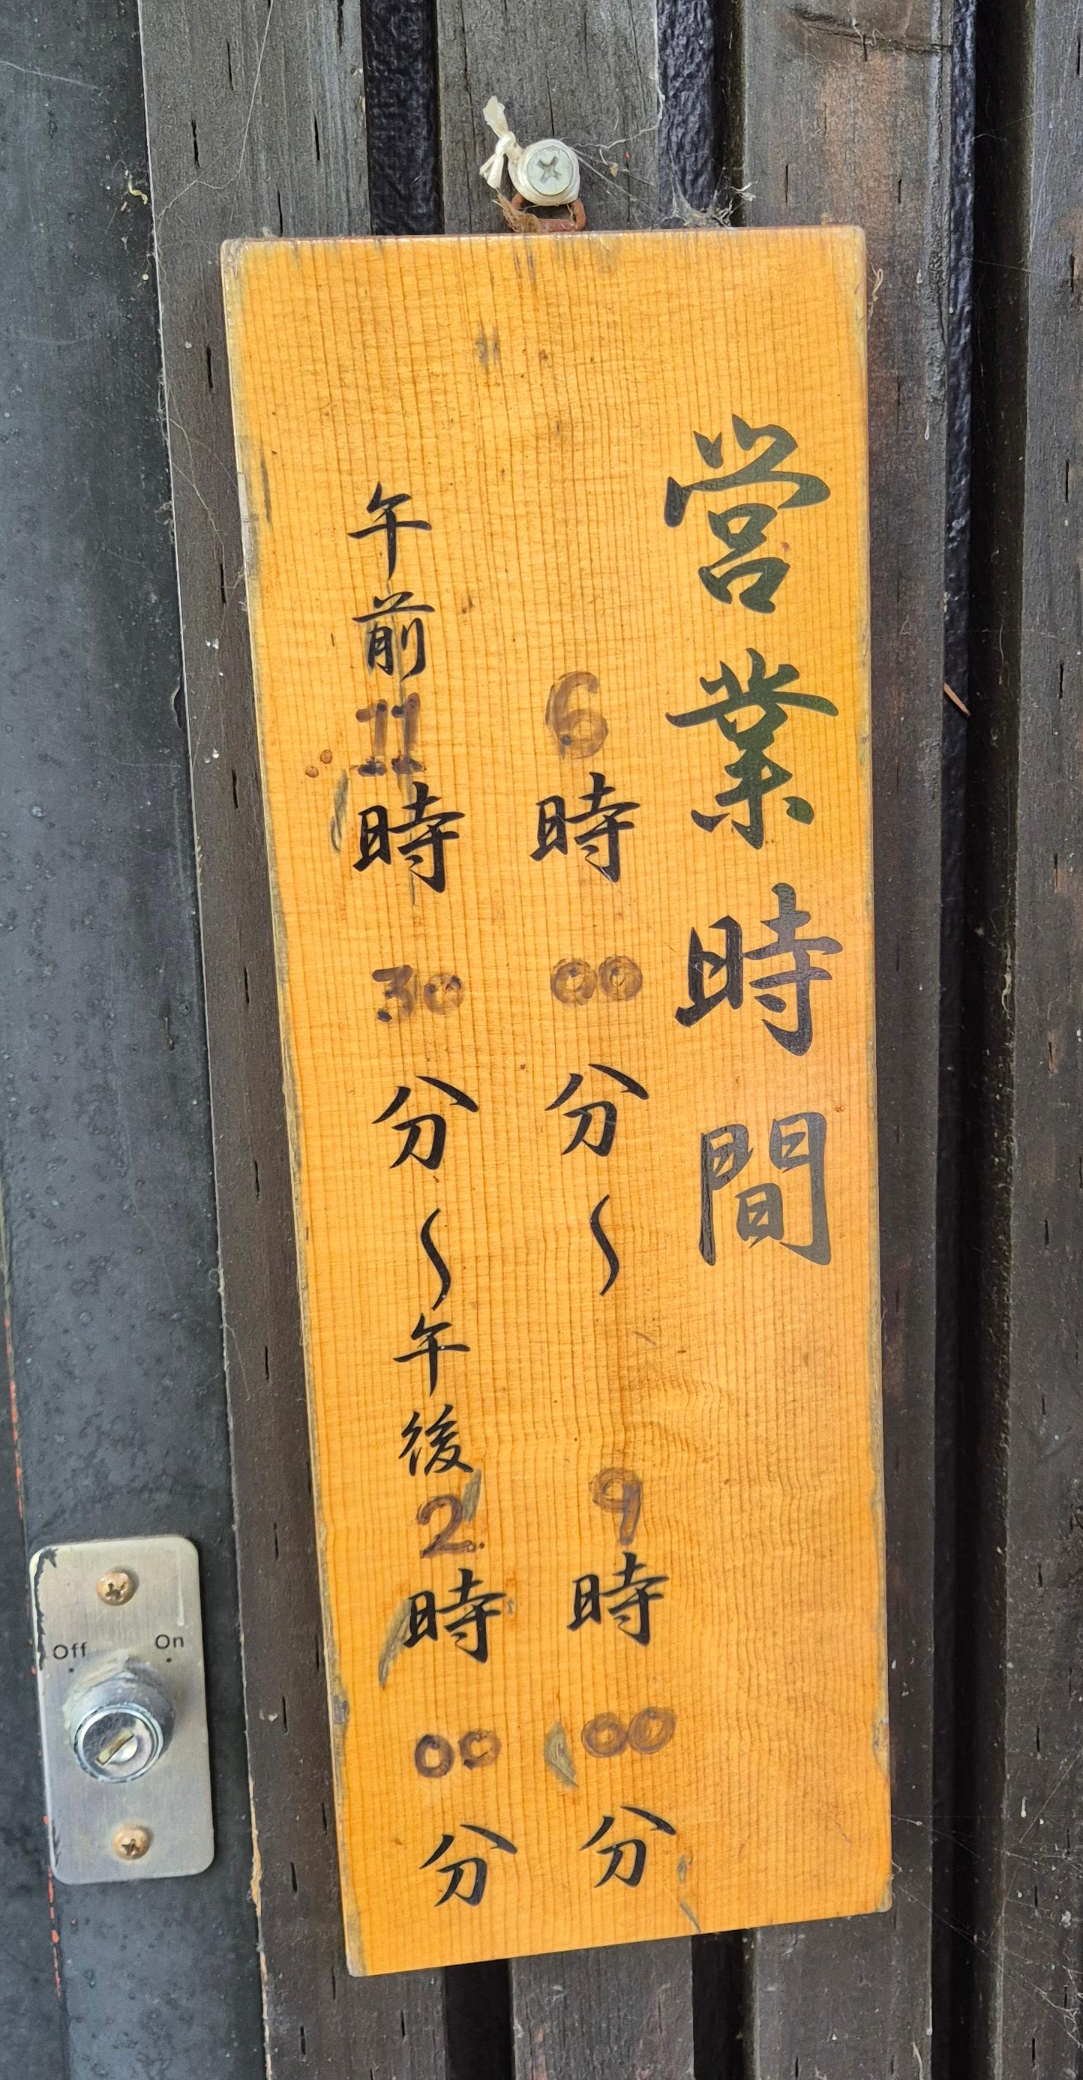 営業時間
6時00分〜9時00分
午前11時30分〜午後2時00分
Off On